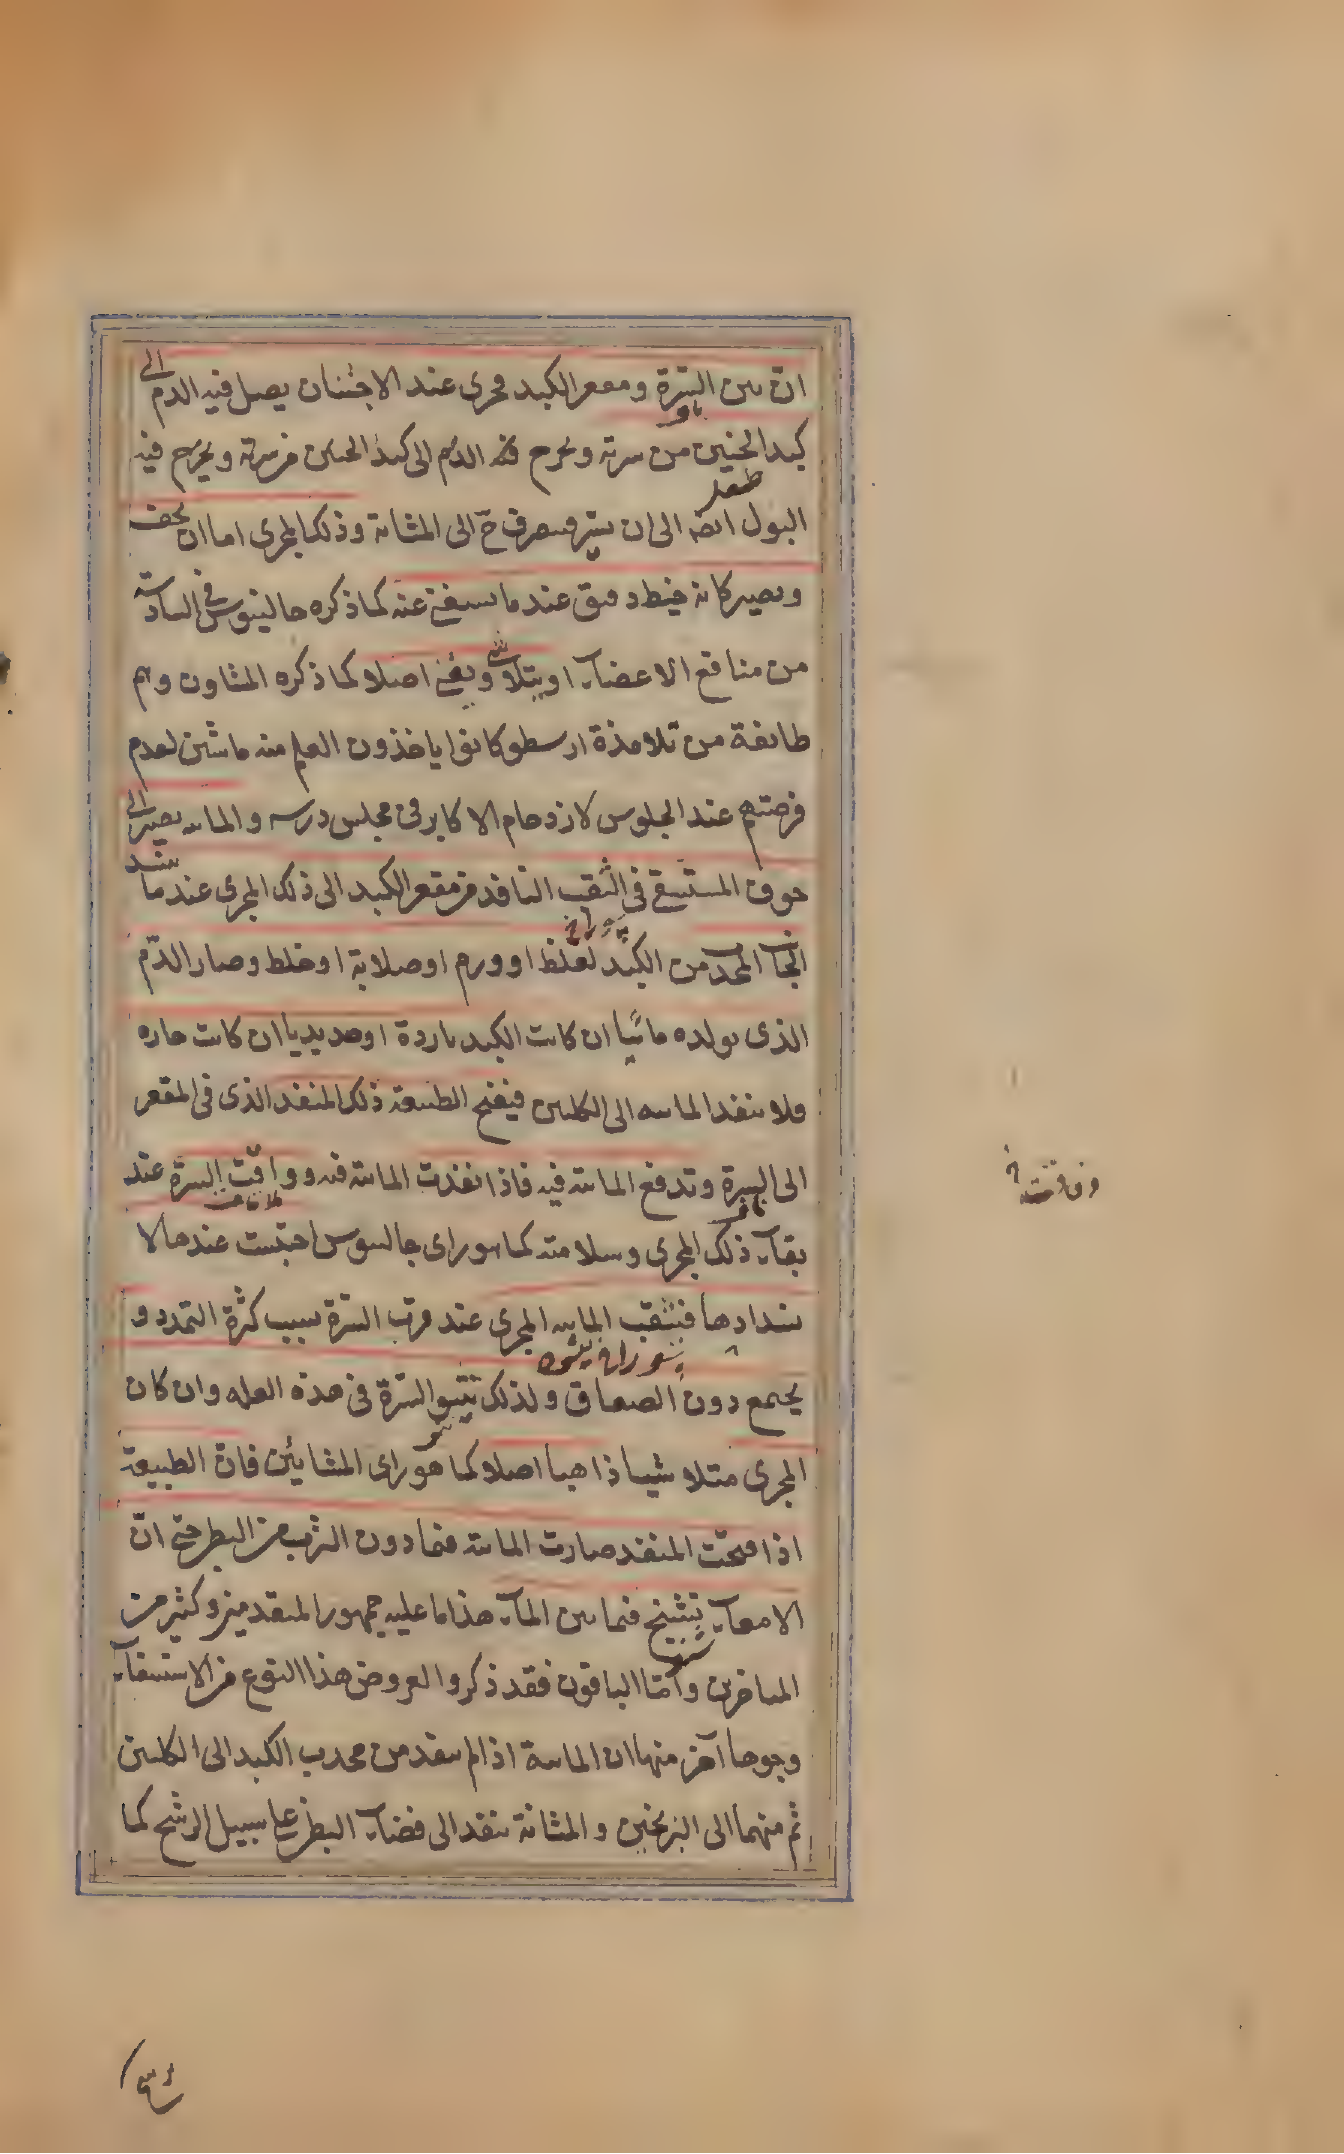 ان بين السرة ومقعر الكبد مجرى عند الاجتنان يصل فيه الدم الى
كبد الجنين من سرته ويخرج فيه الدم الى كبد الجنين من سرته ويخرج فيه
البول ايضا الى ان يتسر فينصرف ح الى المثانة وذلك المجرى اما ان يجف
ويصير كانه خيط دقيق عند ما يستغنى عنه كما ذكره جالينوس فى السادسة
من منافع الاعضآء او يتلاشى ويفنى اصلا كما ذكره المشاون وهم
طائفة من تلامذة ارسطو كانوا ياخذون العلم منه ماشين لعدم
فرصتهم عند الجلوس لازدحام الاكابر فى مجلس درسه والمائيه يصير الى
جوف المستسقى فى الثقب النافد من مقعر الكبد الى ذلك المجرى عند ما ينسد
الجانب المحدب من الكبد لغلظ او ورم او صلابة او خلط وصار الدّم
الذى يولده مائيا ان كانت الكبد باردة او صديديا ان كانت حاره
ولا ينفد المائيه الى الكليتين فيفتح الطبيعة ذلك المنفد الذى فى المقعر
الى السرة وتدفع المائية فيه فاذا نفذت المائية فيه ووافت السرة عند
بقآء ذلك المجرى وسلامته كما هو راى جالينوس احتبست عندها لا
نسدادها فتثقب المائيه المجرى عند قرب السرة بسبب كثرة التمدد و
يجتمع دون الصفاق ولذلك تنتو السرة فى هذه العله وان كان
المجرى متلاشيا ذاهبا اصلا كما هو راى المشايين فان الطبيعة
اذا فتحت المنفد صارت المائية فيما دون الثرب من البطن حتى انّ
الامعآء تتشنج فيما بين المآء هذا ما عليه جمهور المتقدمين وكثير من
المتاخرين وامّا الباقون فقد ذكروا لعروض هذا النوع من الاستسقآء
وجوها آخر منها ان المائية اذا لم ينفد من محدب الكبد الى الكليتين
ثم منهما الى البربخين والمثانة ينفد الى فضآء البطن على سبيل الرشح كما